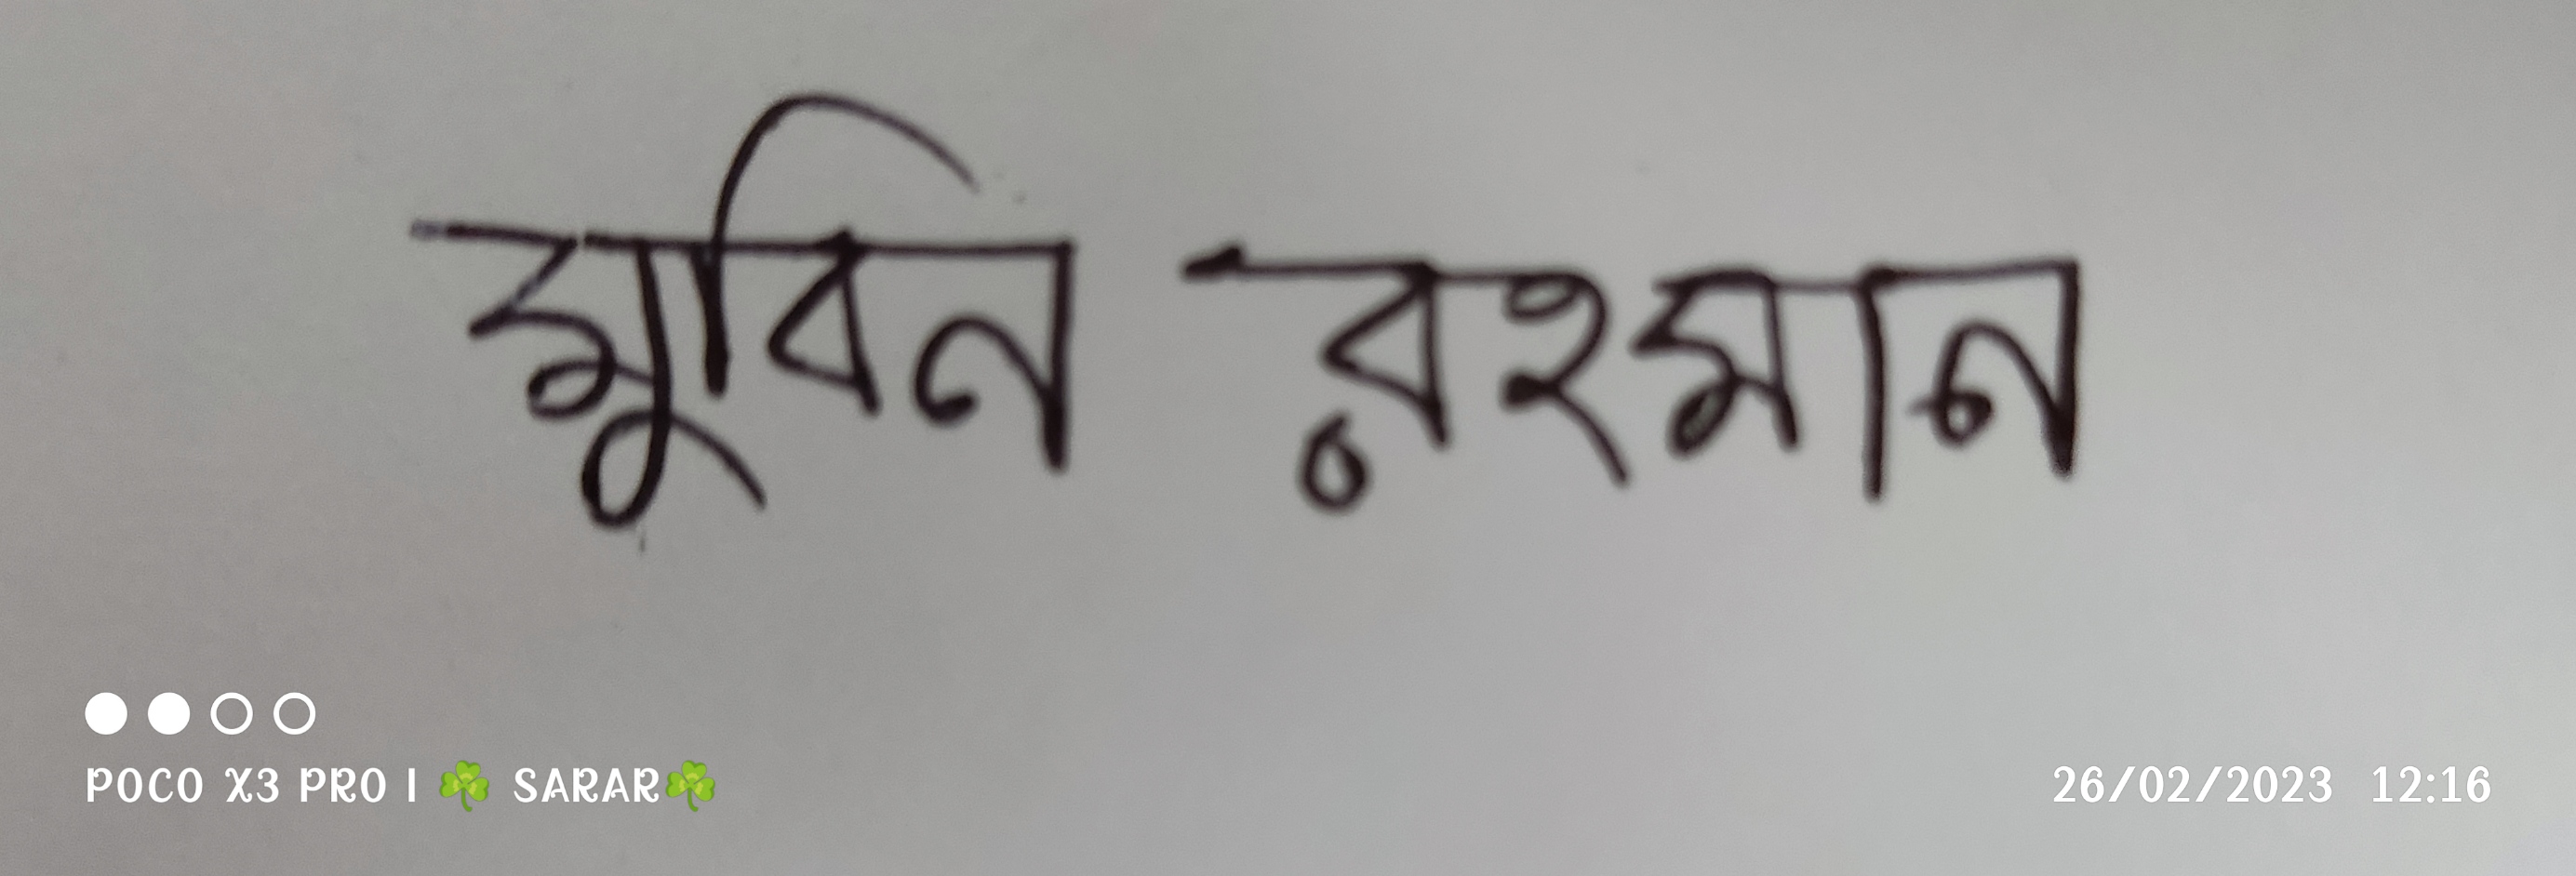 মুবিন রহমান
POCO X3 PRO | ☘️ SARAR☘️
26/02/2023 12:16